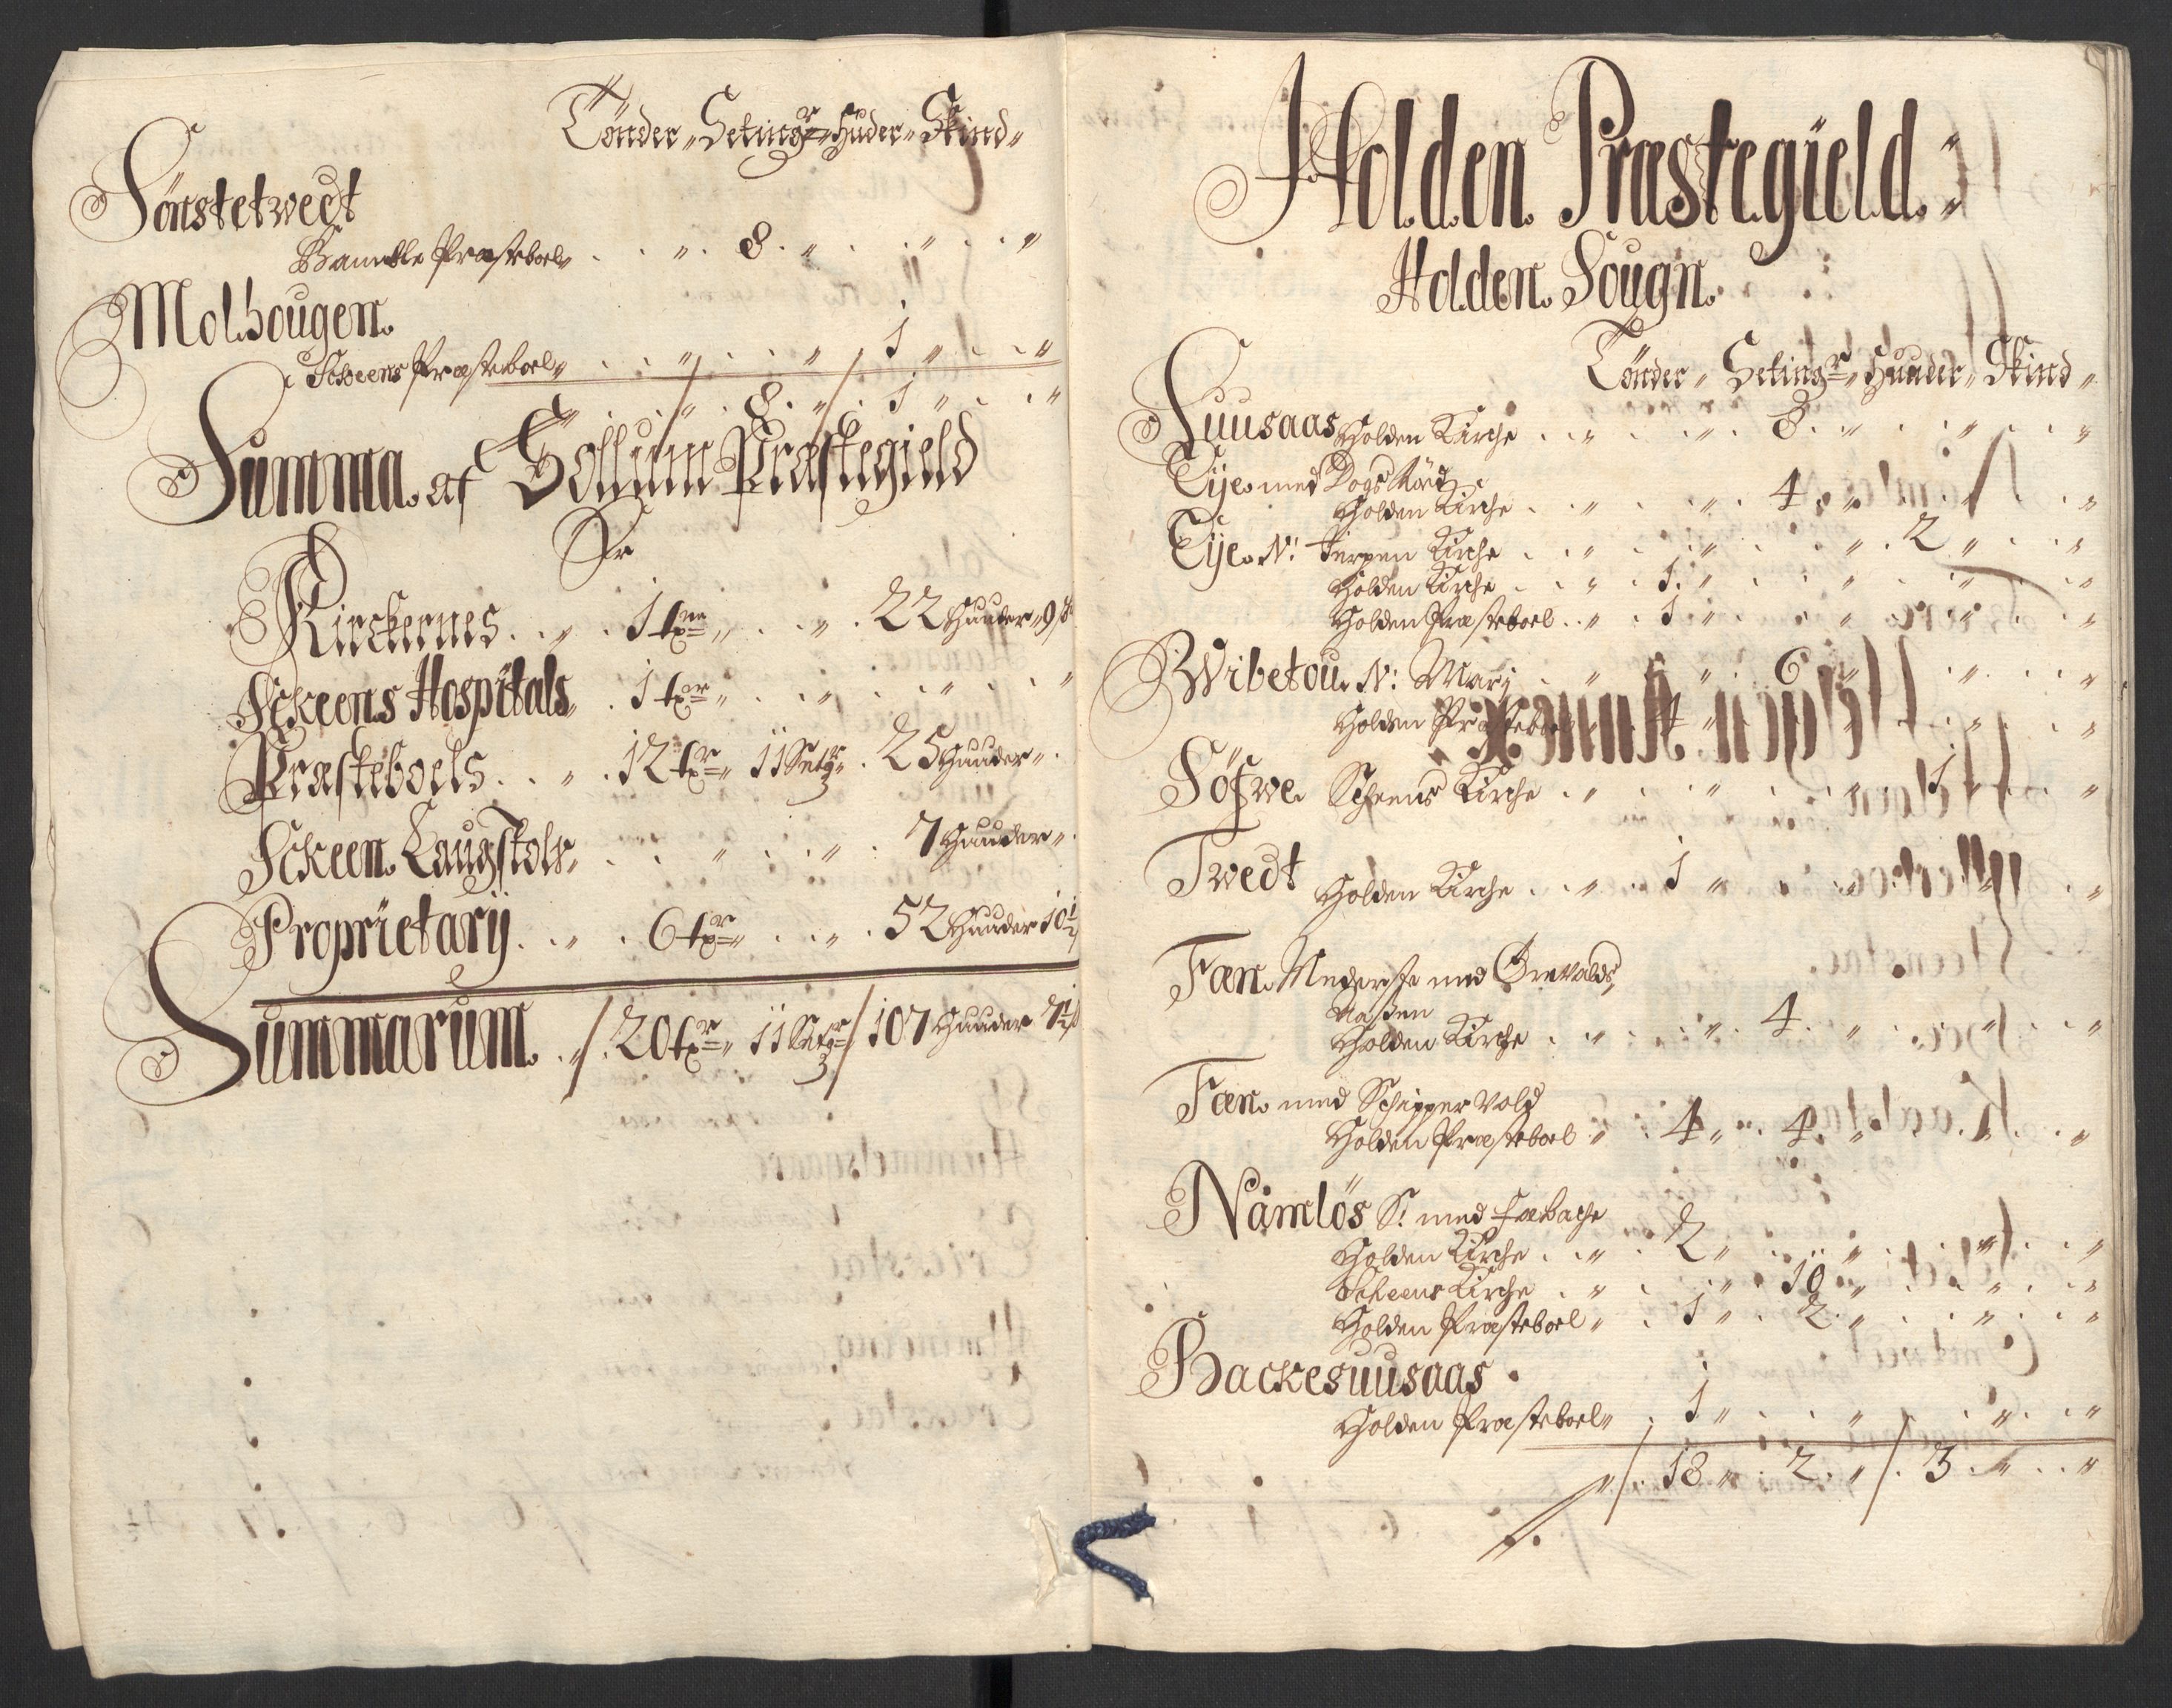 Tönder „ Setingr „ Huder „ Skind „
Sönstetwedt
Bamble Præsteboel „ . . „ . 8 . „ . . „ . . „
Molhougen.
Scheens Præsteboel „ . . „ . . „ 1 „ . . „
„ . 8 . „ 1 „ . . „
Summa. af Sollum Præstegield
Er
Kirckernes . . „ . 1 tne „ . . „ . 22 Huuder „ 9 s
Sckeens Hospitals . 1 tr „ . . „ . . „ . . „
Præsteboels . . „ . 12 tr „ 11 Setr „ . 25 Huuder „ .
Sckeen. Laugstols . . „ . . „ . 7 Huuder „ .
Proprietarij . . „ . 6 tr „ . . „ . 52 Huuder 10½
Summarum. . „ / 20 tr „ 11 Setr / 107 Huuder 7½ s
Holden. Præstegield.
Holden. Sougn.
Tönder „ Setingr „ Huuder „ Skind „
Suusaas Holden Kirche . . „ . . „ . 8 . „ . . „ . . „
Tije. med Dogs Röd
Holden Kirche . . „ . . „ . 4 . „ . . „ . . „
Tije. N: Terpen Kirche . . „ . . „ . . „ . 2 „ . . „
Holden Kirche . . „ . 1 . „ . . „ . . „ . . „
Holden Præsteboel . . „ . 1 „ . . „ . . „ . . „
Wibetou. N: Marj . „ . . „ . 6 „ . . „ . . „
Holden Præsteboel „ . 4 „ . . „ . . „ . . „
Söfwe. Scheens Kirche . . „ . . „ . . „ . 1 „ . . „
Twedt Holden Kirche . . „ . 1 „ . . „ . . „ . . „
Fæn. Nederste med Örevalds
Naßen
Holden Kirche . . „ . . „ . 4 . „ . . „ . . „
Fæn. med Schipper Vold
Holden Præsteboel „ . 4 „ . 4 . „ . . „ . . „
Nåmlös S: med Foebache
Holden Kirche . . „ . 2 „ . . „ . . „ . . „
Scheens Kirche . . „ . . „ . 10 . „ . . „ . . „
Holden Præsteboel „ . 1 „ . 2 . „ . . „ . . „
Backesuusaas .
Holden Præsteboel „ . 1 „ . . „ . . „ . . „
„ / . 18 „ . 2 . „ / . 3 . „ . . „